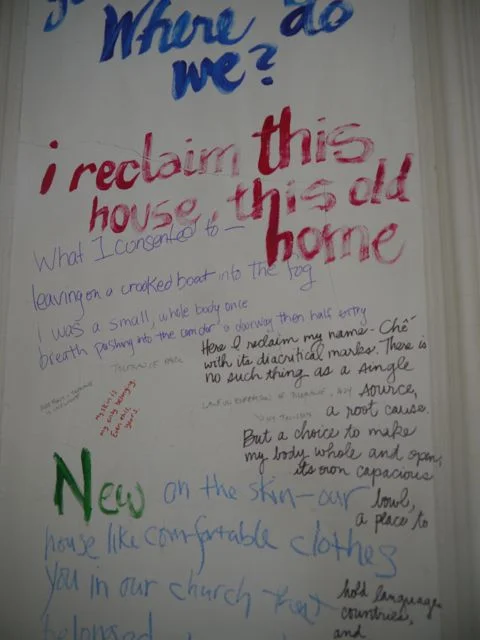 Where do
we?
i reclaim this
house, this old
home
What I consented to —
leaving on a crooked boat into the fog
i was a small, whole body once
breath pushing into the corridor a doorway then half entry
Here I reclaim my name - Chê
with its diacritical marks. There is
no such thing as a single
source,
a root cause.
But a choice to make
my body whole and open,
its own capacious
bowl,
a place to
hold language,
countries,
and
my skin is
my only belonging.
Even this,
yours
New on the skin—our
house like comfortable clothes
you in our church that
belonged